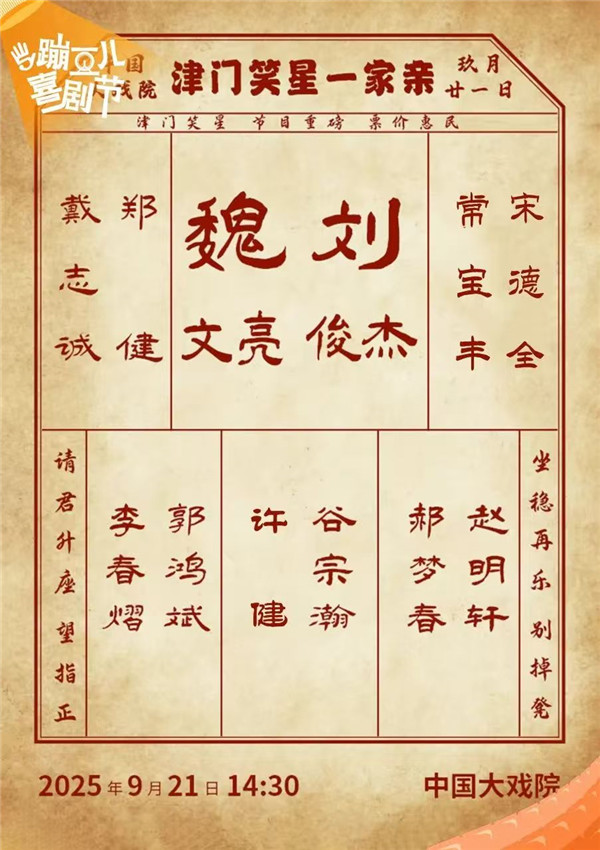 蹦豆儿
喜剧节
中国
大戏院
津门笑星一家亲
玖月
廿一日
津门笑星 节目重磅 票价惠民
戴志诚 郑健
魏文亮 刘俊杰
常宝丰 宋德全
请君升座望指正
李春熠 郭鸿斌
许健 谷宗瀚
郝梦春 赵明轩
坐稳再乐别掉凳
2025年9月21日 14:30
中国大戏院